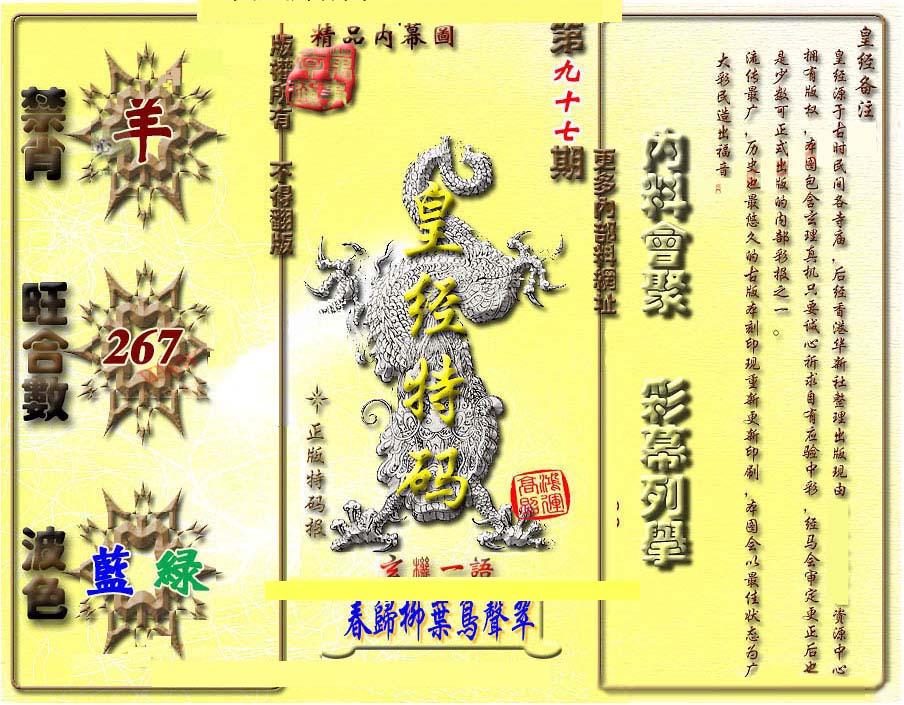 禁肖
羊
旺合數
267
波色
藍 綠
版權所有 不得翻版
精品内幕圖
第九十七期
皇经特码
正版特码报
鴻運高照
玄機一語
春歸柳葉鳥聲翠
更多内部料網址
内料會聚 彩幕列舉
皇经备注
皇经源于古时民间各寺庙，后经香港华新社整理出版现由 资源中心
拥有版权，本图包含玄理真机只要诚心祈求自有应验中彩，经马会审定更正后也
是少数可正式出版的内部彩报之一。
流传最广，历史也最悠久的古版本刻印现重新更新印刷，本图会以最佳状态为广
大彩民造出福音